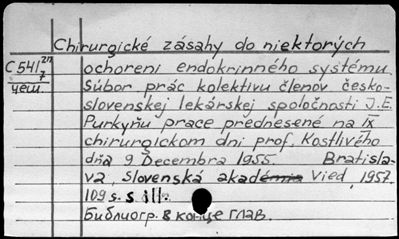 Chirurgické zásahy do niektorých
C541/7 27
чеш.
ochorení endokrinného systému.
Súbor prác kolektivu členov česko-
slovenskej lekárskej spoločnosti J.E.
Purkyňu prace prednesené na IX
chirurgickom dni prof. Kostlivého
dňa 9 Decembra 1955. Bratisla-
va, Slovenská akad Vied, 1957.
109 s. s ill.
Библиогр. в конце глав.